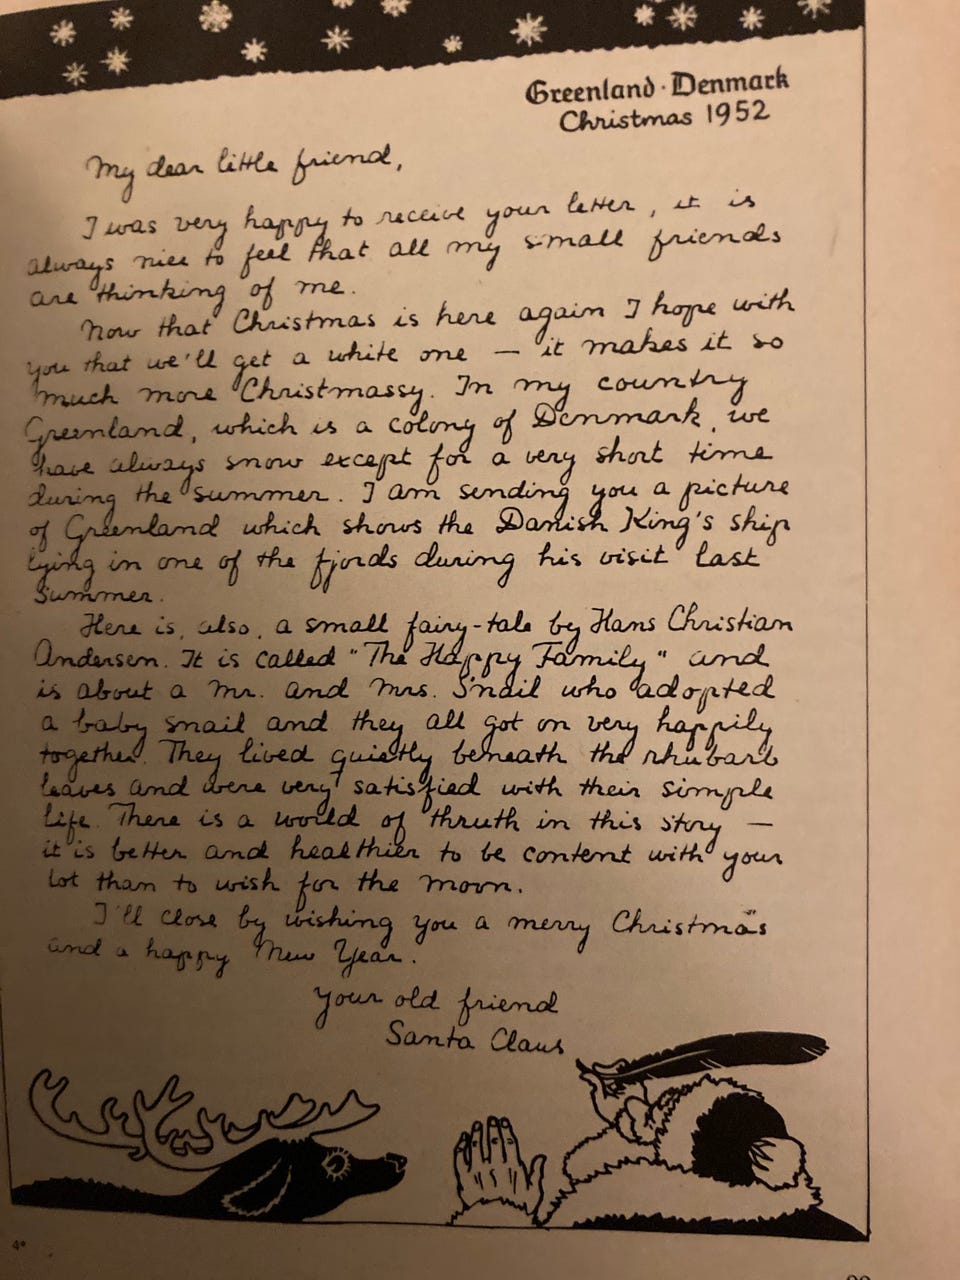 Greenland · Denmark
Christmas 1952
My dear little friend,
I was very happy to receive your letter, it is
always nice to feel that all my small friends
are thinking of me.
Now that Christmas is here again I hope with
you that we'll get a white one — it makes it so
much more Christmassy. In my country
Greenland, which is a colony of Denmark, we
have always snow except for a very short time
during the summer. I am sending you a picture
of Greenland which shows the Danish King's ship
lying in one of the fjords during his visit last
summer.
Here is, also, a small fairy-tale by Hans Christian
Andersen. It is called "The Happy Family" and
is about a Mr. and Mrs. Snail who adopted
a baby snail and they all got on very happily
together. They lived quietly beneath the rhubarb
leaves and were very satisfied with their simple
life. There is a world of thruth in this story —
it is better and healthier to be content with your
lot than to wish for the moon.
I'll close by wishing you a merry Christmas
and a happy New Year.
Your old friend
Santa Claus
4*